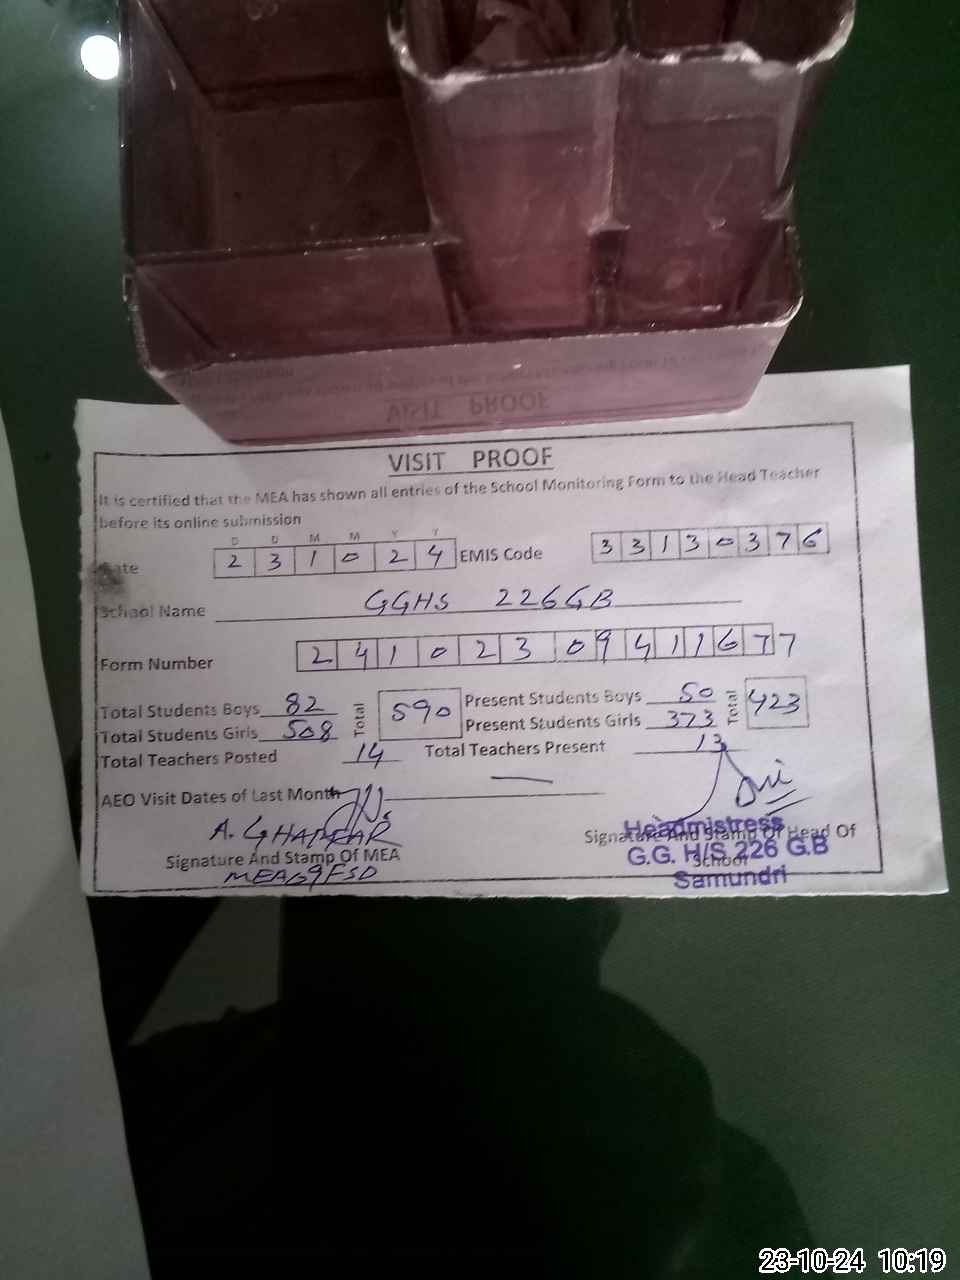 VISIT PROOF
VISIT PROOF
It is certified that the MEA has shown all entries of the School Monitoring Form to the Head Teacher
before its online submission
D D M M Y Y
Date 2 3 1 0 2 4 EMIS Code 3 3 1 3 0 3 7 6
School Name GGHS 226GB
Form Number 2 4 1 0 2 3 0 9 4 1 1 6 7 7
Total Students Boys 82 Total 590 Present Students Boys 50 Total 423
Total Students Girls 508 Present Students Girls 373
Total Teachers Posted 14 Total Teachers Present 13
AEO Visit Dates of Last Month —
A. GHAFFAR
Signature And Stamp Of MEA
MEA69FSD
Signature And Stamp Of Head Of
School
Headmistress
G.G. H/S 226 G.B
Samundri
23-10-24 10:19